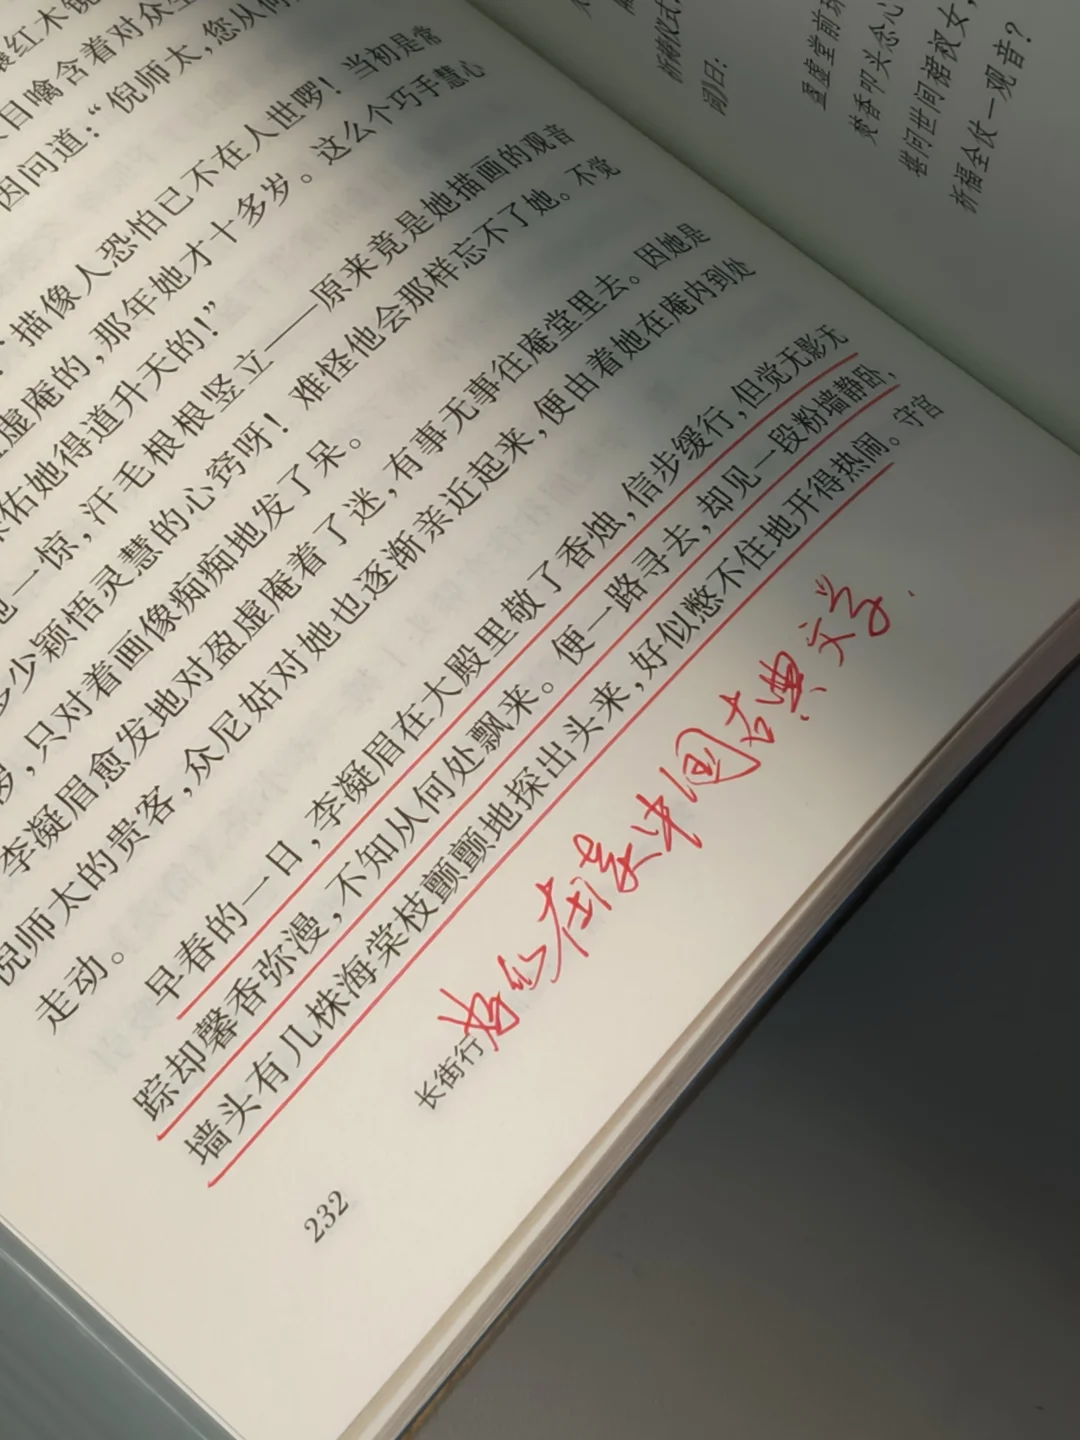 红木镜
目噙含着对众生
因问道：“倪师太，您从何
描像人恐怕已不在人世啰！当初是常
虚庵的，那年她才十多岁。这么个巧手慧心
佑她得道升天的！”
她一惊，汗毛根根竖立——原来竟是她描画的观音
多少颖悟灵慧的心窍呀！难怪他会那样忘不了她。不觉
，只对着画像痴痴地发了呆。
李凝眉愈发地对盈虚庵着了迷，有事无事往庵堂里去。因她是
倪师太的贵客，众尼姑对她也逐渐亲近起来，便由着她在庵内到处
走动。
早春的一日，李凝眉在大殿里敬了香烛，信步缓行，但觉无影无
踪却馨香弥漫，不知从何处飘来。便一路寻去，却见一段粉墙静卧，
墙头有几株海棠枝颤颤地探出头来，好似憋不住地开得热闹。守宫
长街行
好似在中国古典文学.
232
祈祷仪式，
词曰：
盈虚堂前
焚香叩头念心
堪问世间裙衩女，
祈福全仗一观音？